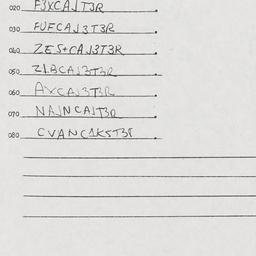 020 F3XCAJT3R
030 FUFCAJ3T3R
040 ZES+CAJ3T3R
050 Z1BCAJ3T3R
060 AXCAJ3T3R
070 NAJNCAJT3R
080 CVANC1K5T38